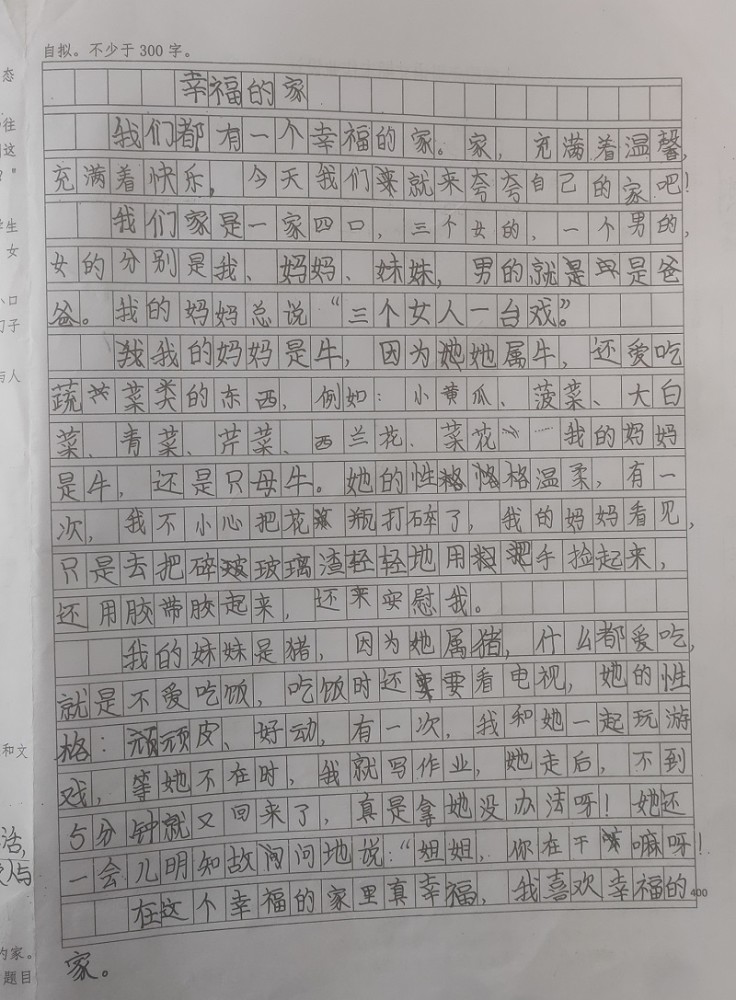 自拟。不少于300字。
幸福的家
我们都有一个幸福的家。家，充满着温馨，
充满着快乐，今天我们就来夸夸自己的家吧！
我们家是一家四口，三个女的，一个男的，
女的分别是我、妈妈、妹妹，男的就是爸
爸。我的妈妈总说“三个女人一台戏”。
我的妈妈是牛，因为她属牛，还爱吃
蔬菜类的东西，例如：小黄瓜、菠菜、大白
菜、青菜、芹菜、西兰花、菜花……我的妈妈
是牛，还是只母牛。她的性格温柔，有一
次，我不小心把花瓶打碎了，我的妈妈看见，
只是去把碎玻璃渣轻轻地用手捡起来，
还用胶带胶起来，还来安慰我。
我的妹妹是猪，因为她属猪，什么都爱吃，
就是不爱吃饭，吃饭时还要看电视，她的性
格：顽皮、好动，有一次，我和她一起玩游
戏，等她不在时，我就写作业，她走后，不到
5分钟就又回来了，真是拿她没办法呀！她还
一会儿明知故问地说：“姐姐，你在干嘛呀！
在这个幸福的家里真幸福，我喜欢幸福的
400
家。
态
往
这
？"
学生
女
小口
们子
与人
和文
活，
的家。
题目